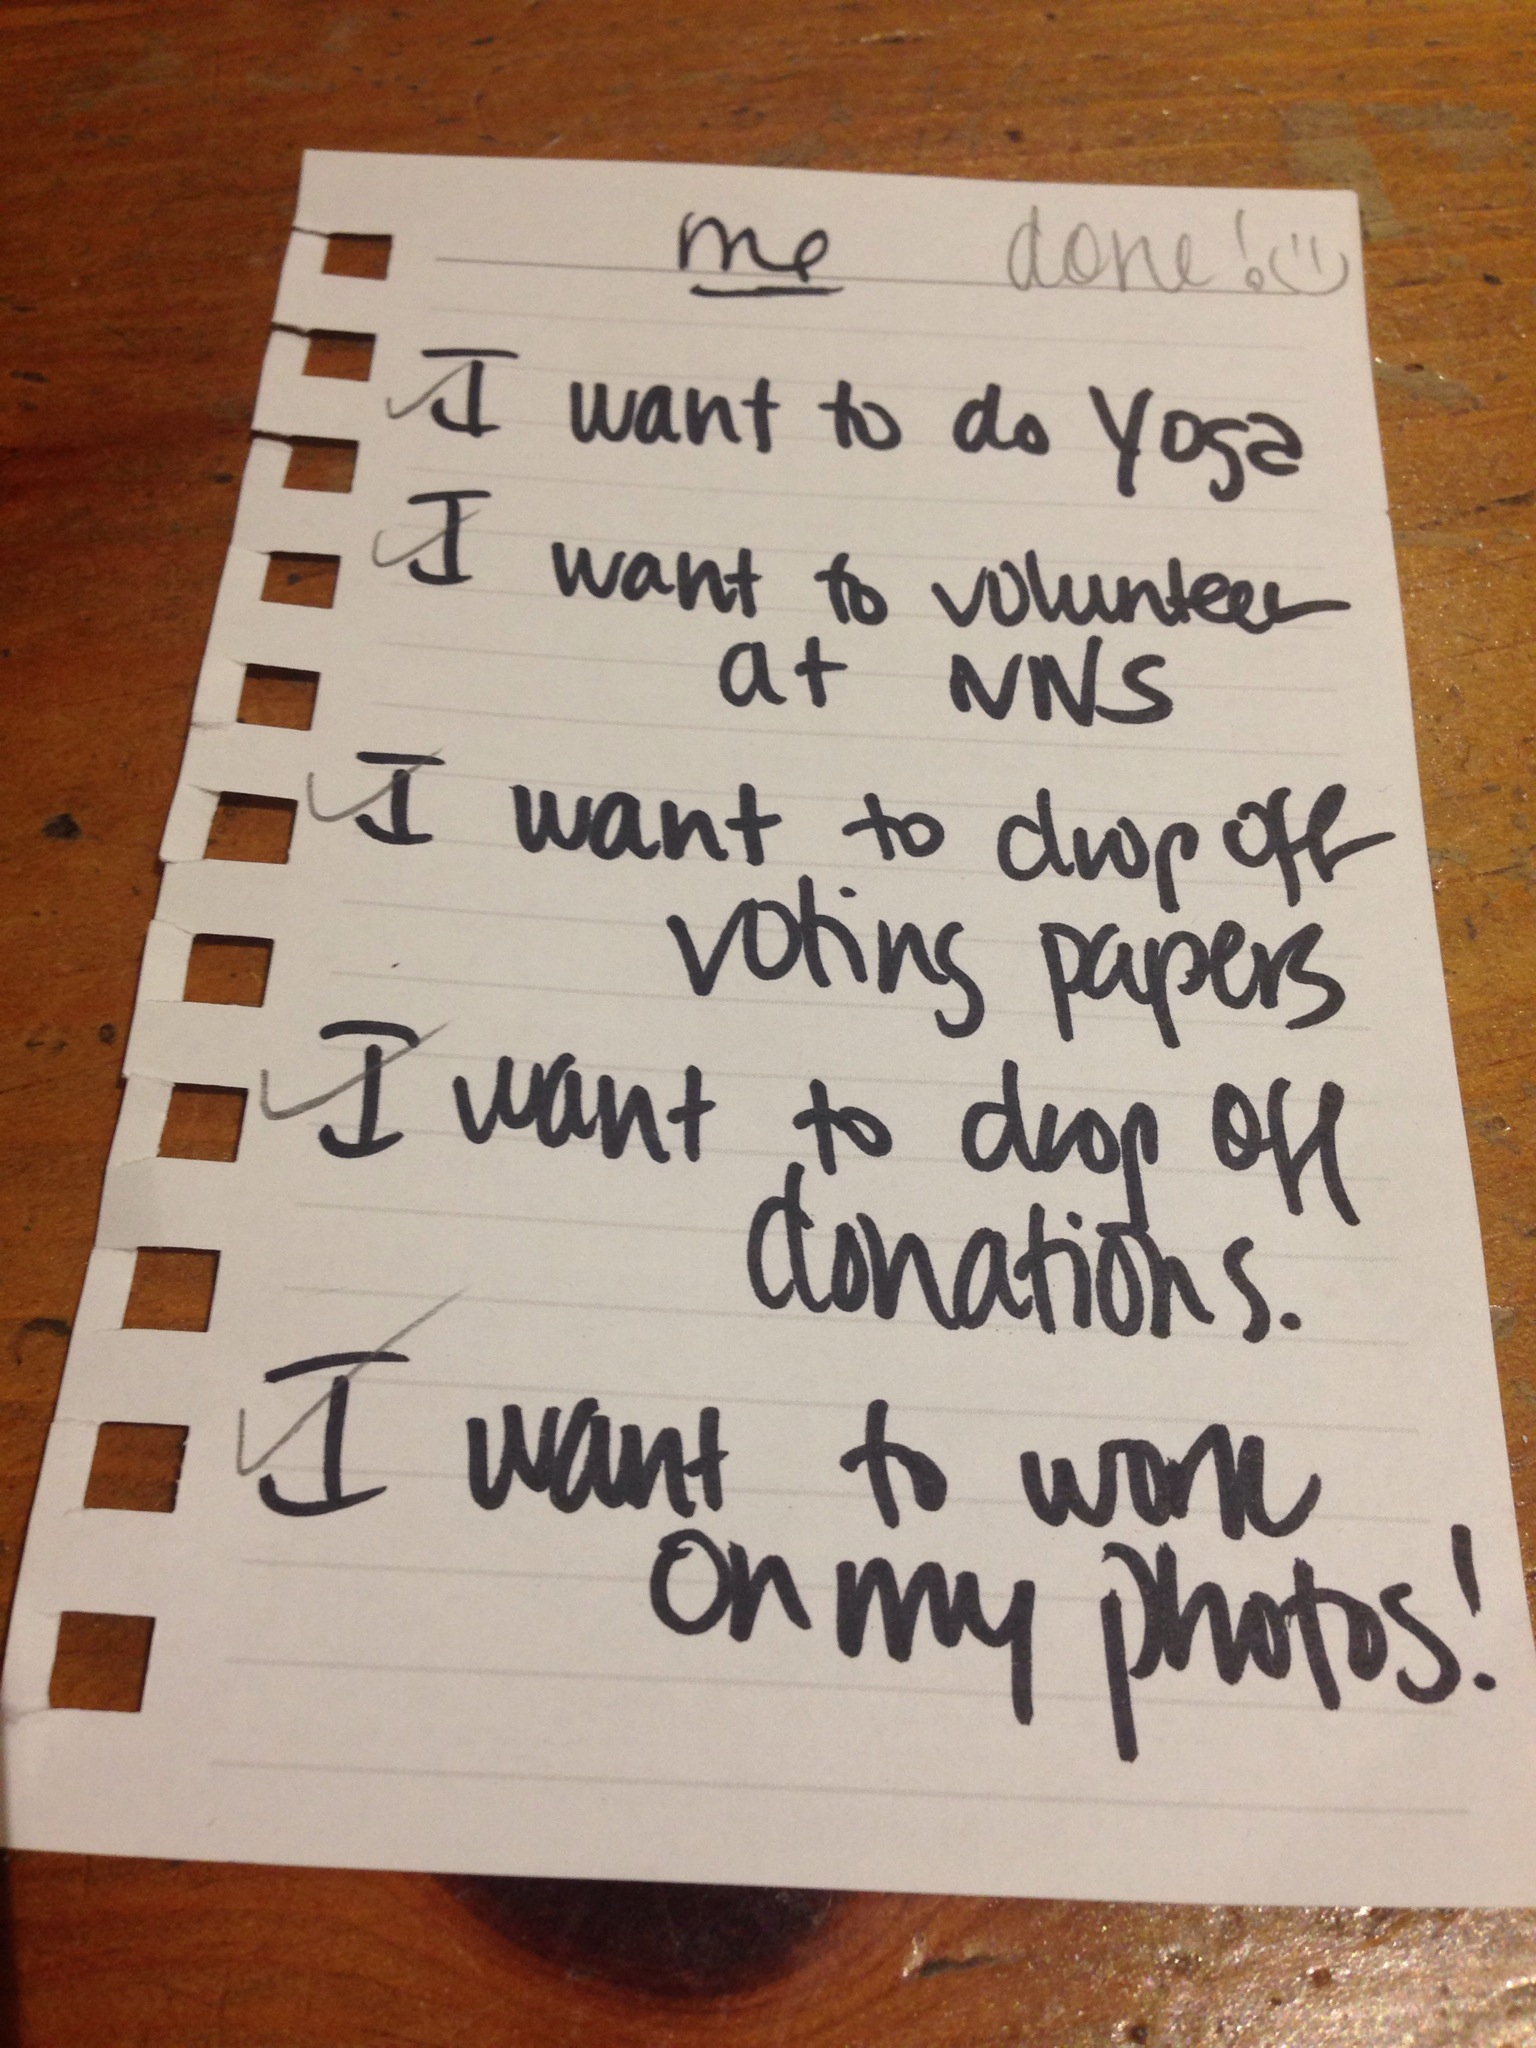 me done! :)
I want to do Yoga
I want to volunteer
at NNS
I want to drop off
voting papers
I want to drop off
donations.
I want to work
on my photos!